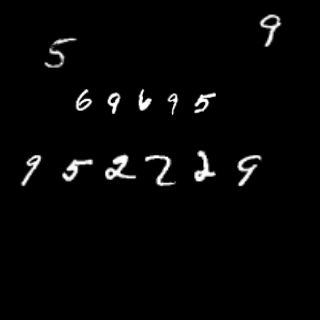 9
5
69695
952229